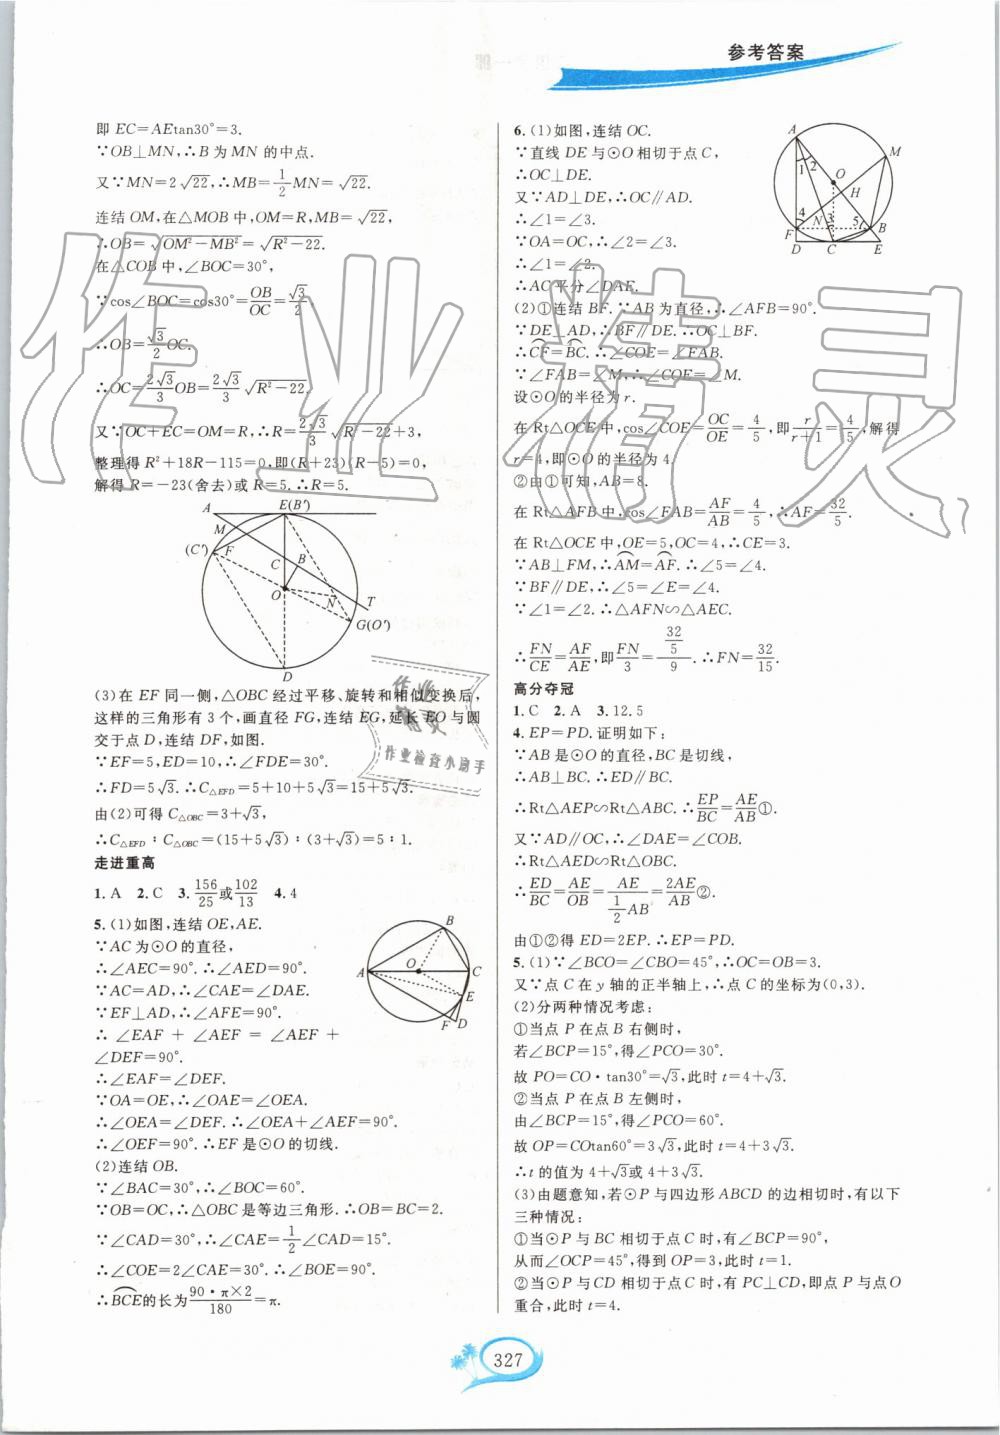 参考答案
即EC=AEtan30°=3.
∵OB⊥MN,∴B为MN的中点.
又∵MN=2√22,∴MB=1/2MN=√22.
连结OM,在△MOB中,OM=R,MB=√22,
∴OB=√(OM²-MB²)=√(R²-22).
在△COB中,∠BOC=30°,
∵cos∠BOC=cos30°=OB/OC=√3/2,
∴OB=√3/2 OC.
∴OC=2√3/3 OB=2√3/3 √(R²-22).
又∵OC+EC=OM=R,∴R=2√3/3 √(R²-22)+3,
整理得R²+18R-115=0,即(R+23)(R-5)=0.
解得R=-23(舍去)或R=5.∴R=5.
A E(B′)
M
(C′) F
C B
O N T
G(O′)
D
(3)在EF同一侧,△OBC经过平移、旋转和相似变换后,
这样的三角形有3个,画直径FG,连结EG,延长EO与圆
交于点D,连结DF,如图.
∵EF=5,ED=10,∴∠FDE=30°.
∴FD=5√3.∴C△EFD=5+10+5√3=15+5√3.
由(2)可得C△OBC=3+√3,
∴C△EFD∶C△OBC=(15+5√3)∶(3+√3)=5∶1.
走进重高
1.A 2.C 3.156/25或102/13 4.4
5.(1)如图,连结OE,AE.
∵AC为⊙O的直径,
∴∠AEC=90°.∴∠AED=90°.
∵AC=AD,∴∠CAE=∠DAE.
∵EF⊥AD,∴∠AFE=90°.
∴∠EAF+∠AEF=∠AEF+
∠DEF=90°.
∴∠EAF=∠DEF.
∵OA=OE,∴∠OAE=∠OEA.
∴∠OEA=∠DEF.∴∠OEA+∠AEF=90°.
∴∠OEF=90°.∴EF是⊙O的切线.
B
A O C
E
F D
(2)连结OB.
∵∠BAC=30°,∴∠BOC=60°.
∵OB=OC,∴△OBC是等边三角形.∴OB=BC=2.
∵∠CAD=30°,∴∠CAE=1/2∠CAD=15°.
∴∠COE=2∠CAE=30°.∴∠BOE=90°.
∴⌒BCE的长为90·π×2/180=π.
6.(1)如图,连结OC.
∵直线DE与⊙O相切于点C,
∴OC⊥DE.
又∵AD⊥DE,∴OC∥AD.
∴∠1=∠3.
∵OA=OC,∴∠2=∠3.
∴∠1=∠2.
∴AC平分∠DAE.
A M
1 2 O
H
4 N 3 5 B
F
D C E
(2)①连结BF.∵AB为直径,∴∠AFB=90°.
∵DE⊥AD,∴BF∥DE.∴OC⊥BF.
∴⌒CF=⌒BC.∴∠COE=∠FAB.
∵∠FAB=∠M,∴∠COE=∠M.
设⊙O的半径为r.
在Rt△OCE中,cos∠COE=OC/OE=4/5,即r/(r+1)=4/5,解得
r=4,即⊙O的半径为4.
②由①可知,AB=8.
在Rt△OCE中,cos∠FAB=AF/AB=4/5,∴AF=32/5.
在Rt△OCE中,OE=5,OC=4,∴CE=3.
∵AB⊥FM,∴⌒AM=⌒AF.∴∠5=∠4.
∵BF∥DE,∴∠5=∠E=∠4.
∵∠1=∠2.∴△AFN∽△AEC.
∴FN/CE=AF/AE,即FN/3=(32/5)/9.∴FN=32/15.
高分夺冠
1.C 2.A 3.12.5
4.EP=PD.证明如下:
∵AB是⊙O的直径,BC是切线,
∴AB⊥BC.
∴Rt△AEP∽Rt△ABC.∴EP/BC=AE/AB①.
又∵AD∥OC,∴∠DAE=∠COB.
∴Rt△AED∽Rt△OBC.
∴ED/BC=AE/OB=AE/(1/2 AB)=2AE/AB②.
由①②得ED=2EP.∴EP=PD.
5.(1)∵∠BCO=∠CBO=45°,∴OC=OB=3.
又∵点C在y轴的正半轴上,∴点C的坐标为(0,3).
(2)分两种情况考虑:
①当点P在点B右侧时,
若∠BCP=15°,得∠PCO=30°.
故PO=CO·tan30°=√3,此时t=4+√3.
②当点P在点B左侧时,
由∠BCP=15°,得∠PCO=60°.
故OP=COtan60°=3√3,此时t=4+3√3.
∴t的值为4+√3或4+3√3.
(3)由题意知,若⊙P与四边形ABCD的边相切时,有以下
三种情况:
①当⊙P与BC相切于点C时,有∠BCP=90°,
从而∠OCP=45°,得到OP=3,此时t=1.
②当⊙P与CD相切于点C时,有PC⊥CD,即点P与点O
重合,此时t=4.
作业精灵
作业检查小助手
327